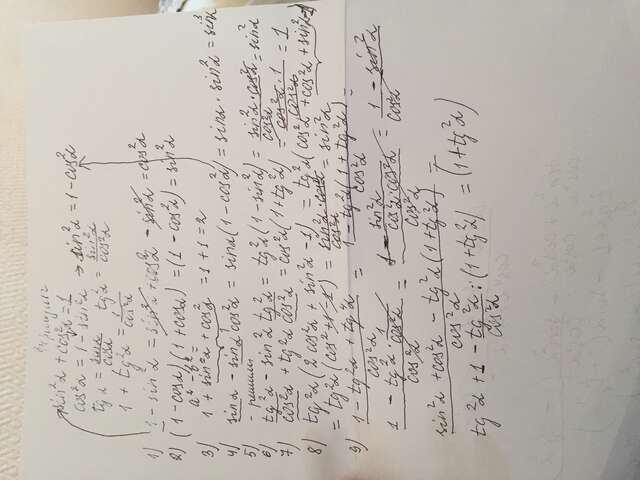 sin²α + cos²α = 1
cos²α = 1 - sin²α → sin²α = 1 - cos²α
tgα = sinα/cosα tg²α = sin²α/cos²α
1 + tg²α = 1/cos²α
1) 1 - sin²α = sin²α + cos²α - sin²α = cos²α
2) (1 - cosα)(1 + cosα) = (1 - cos²α) = sin²α
a² - b² =
3) 1 + sin²α + cos²α = 1 + 1 = 2
4) sinα - sinα cos²α = sinα(1 - cos²α) = sinα · sin²α = sin³α
5) - решили
6) tg²α - sin²α tg²α = tg²α(1 - sin²α) = sin²α · cos²α/cos²α = sin²α
7) cos²α + tg²α cos²α = cos²α(1 + tg²α) = cos²α · 1/cos²α = 1
8) tg²α(2cos²α + sin²α - 1) = tg²α(cos²α + cos²α + sin²α - 1)
= tg²α(cos²α + 1 - 1) = sin²α · cos²α/cos²α = sin²α
9) 1 - tg²α + tg⁴α/cos²α = 1 - tg²α(1 + tg²α)/cos²α =
1 - tg²α · 1/cos²α/cos²α = 1 - sin²α/cos²α · cos²α/cos²α = 1 - sin²α/cos²α
sin²α + cos²α - tg²α(1 + tg²α)/cos²α =
tg²α + 1 - tg²α/cos²α : (1 + tg²α) = (1 + tg²α)